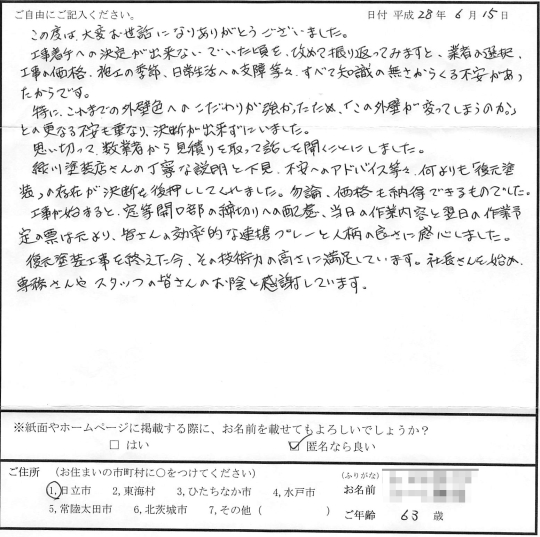 ご自由にご記入ください。 日付 平成 28 年 6 月 15 日
この度は、大変お世話になりありがとうございました。
工事着手への決定が出来ないでいた頃を、改めて振り返ってみますと、業者の選択、
工事の価格、施工の季節、日常生活への支障等々、すべて知識の無さからくる不安があっ
たからです。
特に、これまでの外壁色へのこだわりが強かったため、「この外壁が変ってしまうのか」
との更なる不安も重なり、決断が出来ずにいました。
思い切って、数業者から見積りを取って話しを聞くことにしました。
緑川塗装店さんの丁寧な説明と下見、不安へのアドバイス等々、何よりも「復元塗
装」の存在が決断を後押ししてくれました。勿論、価格も納得できるものでした。
工事が始まると、窓等開口部の締切りへの配慮、当日の作業内容と翌日の作業予
定の票は元より、皆さんの効率的な連携プレーと人柄の良さに感心しました。
復元塗装工事を終えた今、その技術力の高さに満足しています。社長さんを始め、
専務さんやスタッフの皆さんのお陰と感謝しています。
※紙面やホームページに掲載する際に、お名前を載せてもよろしいでしょうか？
□ はい ☑ 匿名なら良い
ご住所 （お住まいの市町村に○をつけてください）
1,日立市 2,東海村 3,ひたちなか市 4,水戸市
5,常陸太田市 6,北茨城市 7,その他（ ）
(ふりがな)
お名前
ご年齢 63 歳